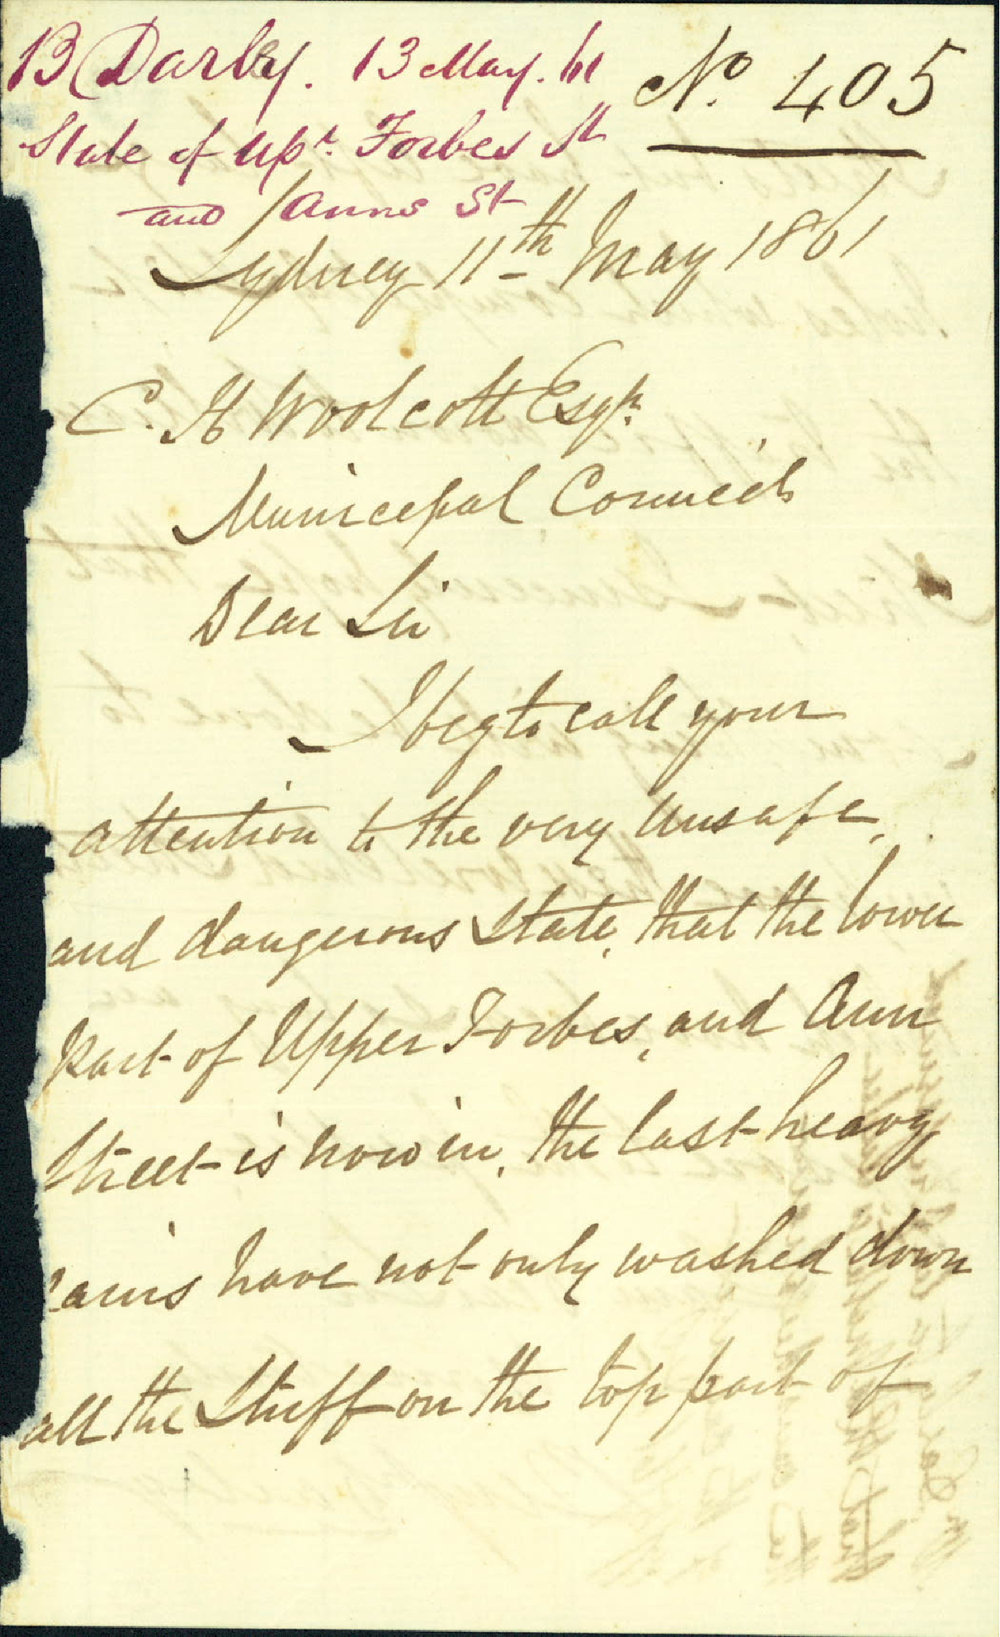 B Darley. 13 May. 61
No. 405
State of Upr. Forbes St
and Anns St
Sydney 11th May 1861
C. H Woolcott Esqr.
Municepal Council
Dear Sir
I beg to call your
attention to the very unsafe,
and dangerous state, that the lower
part of Upper Forbes, and Ann
Street is now in, the last heavy
rains have not only washed down
all the stuff on the top part of